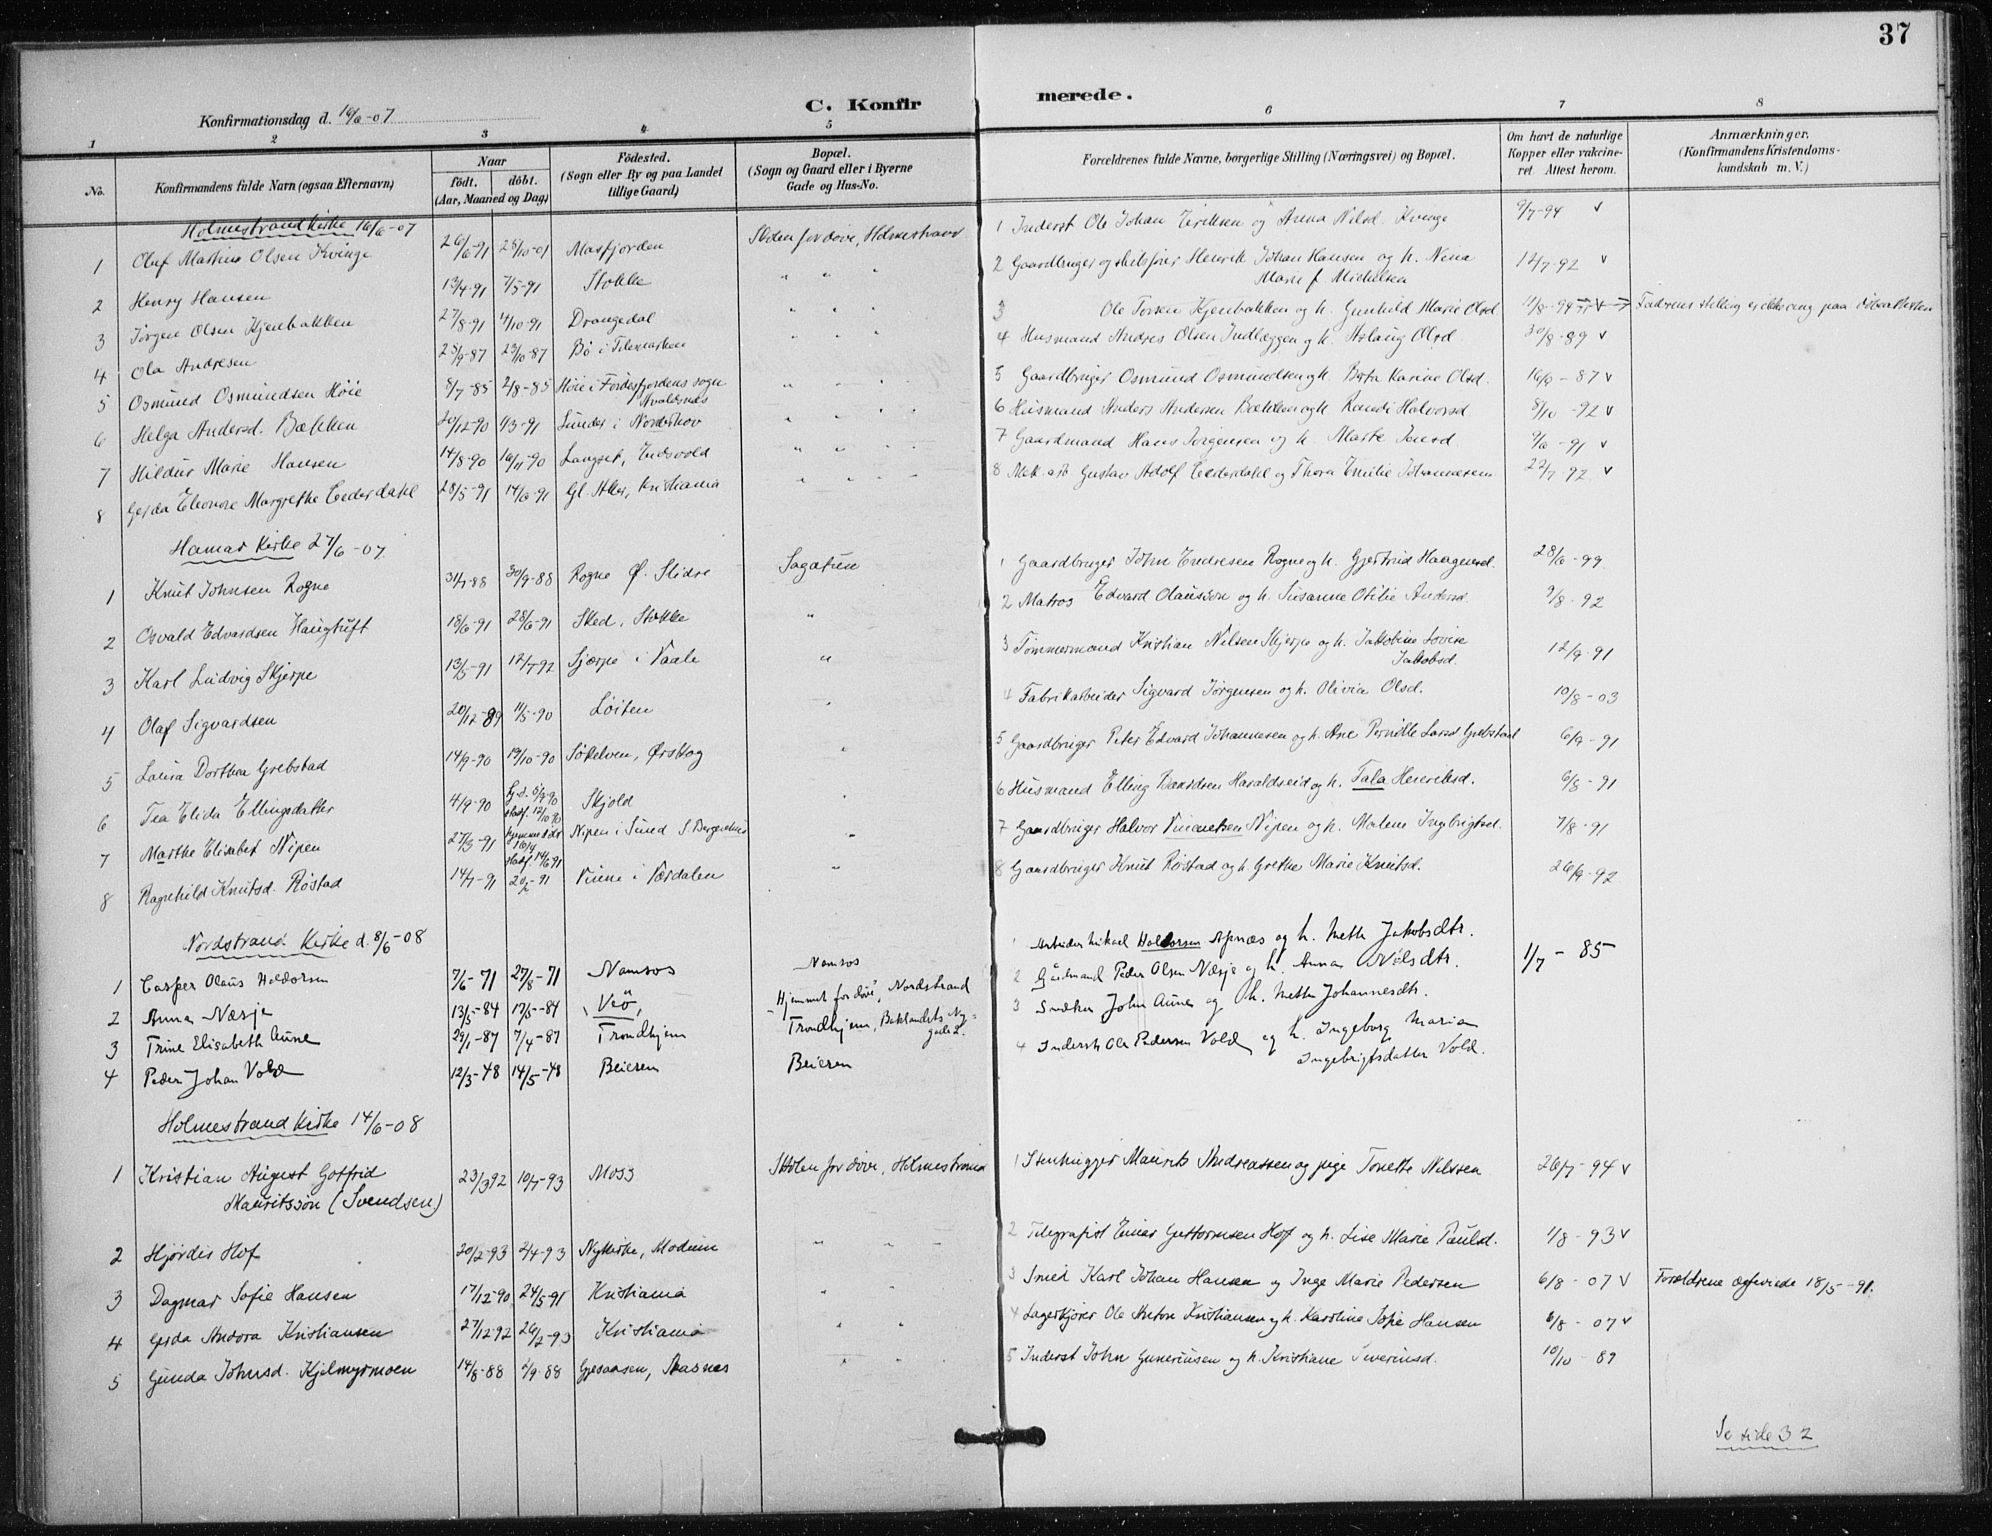 37
C. Konfirmerede.
Konfirmationsdag d. 16/6-07
1 2 3 4 5 6 7 8
No. Konfirmandens fulde Navn (ogsaa Efternavn) Naar født. døbt. (Aar, Maaned og Dag) Fødested. (Sogn eller By og paa Landet tillige Gaard) Bopæl. (Sogn og Gaard eller i Byerne Gade og Hus-No. Forældrenes fulde Navne, borgerlige Stilling (Næringsvei) og Bopæl. Om havt de naturlige Kopper eller vakcineret. Attest herom. Anmærkninger. (Konfirmandens Kristendomskundskab m. V.)
Holmestrand Kirke 16/6-07
1 Oluf Martins Olsen Kvinge 26/6-91 25/10-01 Masfjorden Skolen for døve, Holmestrand 1 Inderst Ole Johan Eriksen og Anna Nilsd. Kvinge 9/7-94 v
2 Henry Hansen 13/4-91 7/5-91 Stokke " " " 2 Gaardbruger og skibsfører Henrik Johan Hansen og h. Nina Marie f. Michelsen 12/7-92 v
3 Jørgen Olsen Kjenbakken 27/8-91 4/10-91 Drangedal " " " 3 Ole Torsen Kjenbakken og h. Gunhild Marie Olsd 11/8-94 v Fadrens stilling er ikke opg paa døbeattesten
4 Ola Andresen 25/9-87 23/10-87 Bø i Telemarken " " 4 Husmand Andres Olsen Indlæggen og h. Aslaug Olsd. 30/8-89 v
5 Osmund Osmundsen Høie 8/7-85 2/8-85 Høie i Førdesfjordens sogn Avaldsnes " - " " 5 Gaardbruger Osmund Osmundsen og h. Berta Karine Olsd. 16/9-87 v
6 Helga Andersd. Bækken 20/12-90 1/3-91 Lunder i Norderhov " " " 6 Husmand Anders Andersen Bækken og h. Randi Halvorsd. 8/10-92 v
7 Hildur Marie Hansen 14/8-90 16/11-90 Langset, Eidsvold " " " 7 Gaardmand Hans Jørgensen og h. Marte Jensd. 9/6-91 v
8 Gerda Eleonore Margrethe Cederdahl 28/5-91 14/6-91 Gl. Aker, Kristiania " " " 8 Mek. arb Gustav Adolf Cederdahl og Thora Emilie Johannesen 22/7-92 v
Hamar Kirke 27/6-07
1 Knut Johnsen Rogne 31/7-88 30/9-88 Rogne Ø. Slidre Sagatun 1 Gaardbruger John Endresen Rogne og h. Gjertrud Haagensd. 28/6-99
2 Osvald Edvardsen Haugtuft 18/6-91 28/6-91 Sked, Stokke " 2 Matros Edvard Olaussen og h. Susanne Otilie Andersd. 9/8-92
3 Karl Ludvig Skjerpe 13/5-91 12/7-92 Sjærpe i Vaale " 3 Tømmermand Kristian Nilsen Skjerpe og h. Jakobine Lovise Jakobsd. 12/9-91
4 Olaf Sigvardsen 20/12-89 11/5-90 Løiten " 4 Fabrikarbeider Sigvard Jørgensen og h. Olivia Olsd. 10/8-03
5 Laura Dorthea Grebstad 14/9-90 19/10-90 Søkelven, Ørskog " 5 Gaardbruger Peter Edvard Johannesen og h. Ane Pernille Larsd Grebstad 6/9-91
6 Tea Elida Ellingsdatter 4/9-90 hj.d. 5/9-90 stadf. 12/10 90 Skjold " 6 Husmand Elling Haraldseid og h. Tala Henriksd. 6/8-91
7 Marthe Elisabet Nipen 27/3-91 hjemmedøbt 10/4 stadf. 14/6 91 Nipen i Sund S. Bergenhus " 7 Gaardbruger Halvor Nipen og h. Malene Ingebrigtsd. 7/8-91
8 Ragnhild Knutsd. Røstad 14/7-91 Vinne i Værdalen " 8 Gaardbruger Knut Røstad og h. Grethe Marie Knutsd. 26/9-92
Nordstrand Kirke d. 8/6-08
1 Casper Olaus Haldorsen 7/6-71 27/8-71 Namsos Namsos 1 Arbeider Mikael Haldorsen Apnæs og h. Meth Jakobsdtr. 1/7-85
2 Anna Næsje 13/5-84 17/5-84 Veø, Hjemmet for døve, Nordstrand 2 Gårdmand Peder Olsen Næsje og h. Anna Nilsdtr.
3 Trine Elisabeth Aune 29/1-87 7/4-87 Trondhjem Trondhjem, Baklandets Nygade 2. 3 Snedker John Aune og h. Metta Johannesdtr.
4 Peder Johan Vold 12/3-48 14/5-48 Beieren Beieren 4 Inderst Ole Pedersen Vold og h. Ingeborg Maria Ingebrigtsdatter Vold.
Holmestrand Kirke 14/6-08
1 Kristian August Gotfrid Mauritssøn (Svendsen) 23/3 92 10/7-93 Moss Skolen for døve, Holmestrand 1 Stenhugger Maurits Andreassen og pige Tonette Nilssen 26/7-94 v
2 Hjørdis Hof 20/2-93 2/4-93 Nykirke, Modum " " " 2 Telegrafist Einar Guttormsen Hof og h. Lise Marie Paulsd. 1/8-93 v
3 Dagmar Sofie Hansen 17/12-90 24/5-91 Kristiania " 3 Smed Karl Johan Hansen og Inge Marie Pedersen 6/8-07 v Forældrene ægteviede 18/5-91.
4 Gerda Andora Kristiansen 27/12-92 26/2-93 Kristiania " " 4 Lagerkjører Ole Anton Kristiansen og h. Karoline Sofie Hansen 6/8-07 v
5 Gunda Johnsd. Kjelmyrmoen 14/8-88 2/9-88 Gjesaasen, Aasnes " " 5 Inderst John Guneriusen og h. Kristiane Severinsd. 10/10-89
Se side 32